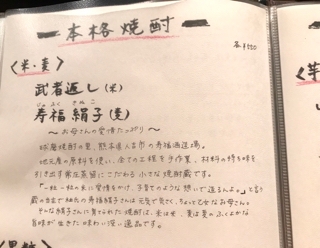 本格焼酎
各¥550
〈米・麦〉
武者返し(米)
じゅふく きぬこ
寿福 絹子(麦)
〜お母さんの愛情たっぷり〜
球磨焼酎の里、熊本県人吉市の寿福酒造場。
地元産の原料を使い、全ての工程を手作業、材料の持ち味を
引き出す常圧蒸留にこだわる小さな焼酎蔵です。
「一粒一粒の米に愛情をかけ、子育てのような想いで造るんよ。」と言う
蔵の当主で杜氏の寿福絹子さんは元気で気さく、ちょっと乙女なお母さん。
そんな絹子さんに育てられた焼酎は、米は米、麦は麦のふくよかな
旨味が生きた味わい深い逸品です。
〈芋